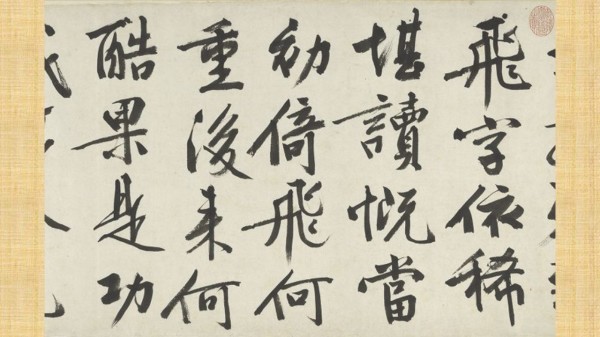 飛字依稀
堪讀慨當
初倚飛何
重後来何
酷果是功